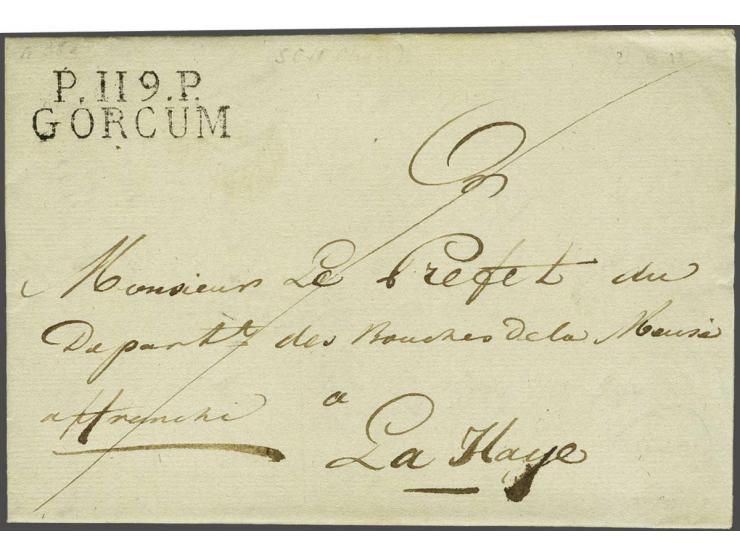 P.119.P.
GORCUM
Monsieur Le Prefet du
Departt. des Bouches de la Meuse
affranchi a
La Haye